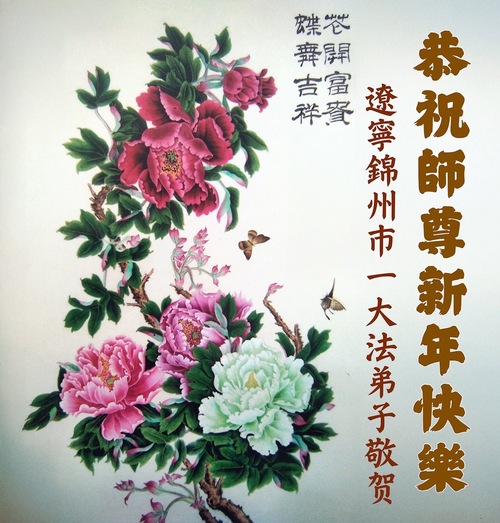 恭祝師尊新年快樂
遼寧錦州市一大法弟子敬贺
花開富貴
蝶舞吉祥